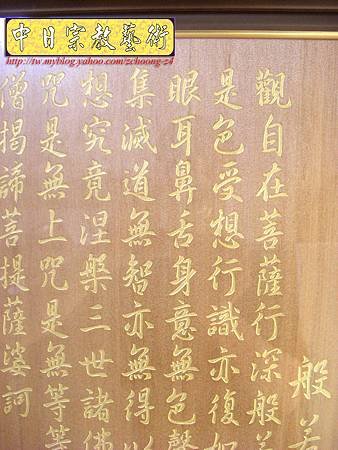 中日宗教藝術
http://tw.myblog.yahoo.com/zchoong-z4
般若
觀自在菩薩行深般若
是色受想行識亦復如
眼耳鼻舌身意無色聲
集滅道無智亦無得以
想究竟涅槃三世諸佛
咒是無上咒是無等等
僧揭諦菩提薩婆訶